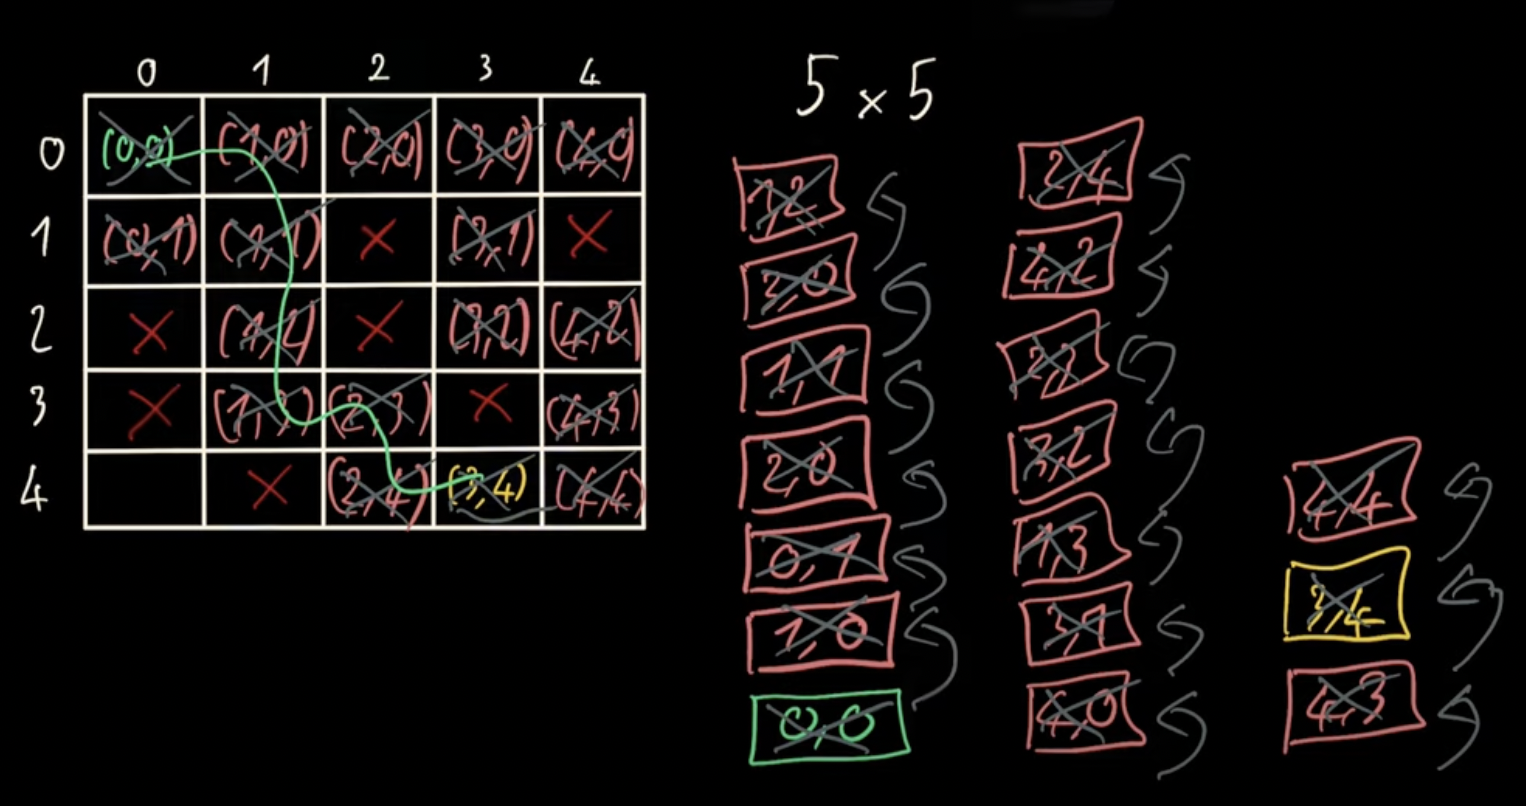 0 1 2 3 4
0 (0,0) (1,0) (2,0) (3,0) (4,0)
1 (0,1) (1,1) × (3,1) ×
2 × (1,2) × (3,2) (4,2)
3 × (1,3) (2,3) × (4,3)
4 × (2,4) (3,4) (4,4)
5 × 5
1,2
3,0
1,1
2,0
0,1
1,0
0,0
2,4
4,2
2,3
3,2
1,3
3,1
4,0
4,4
3,4
4,3